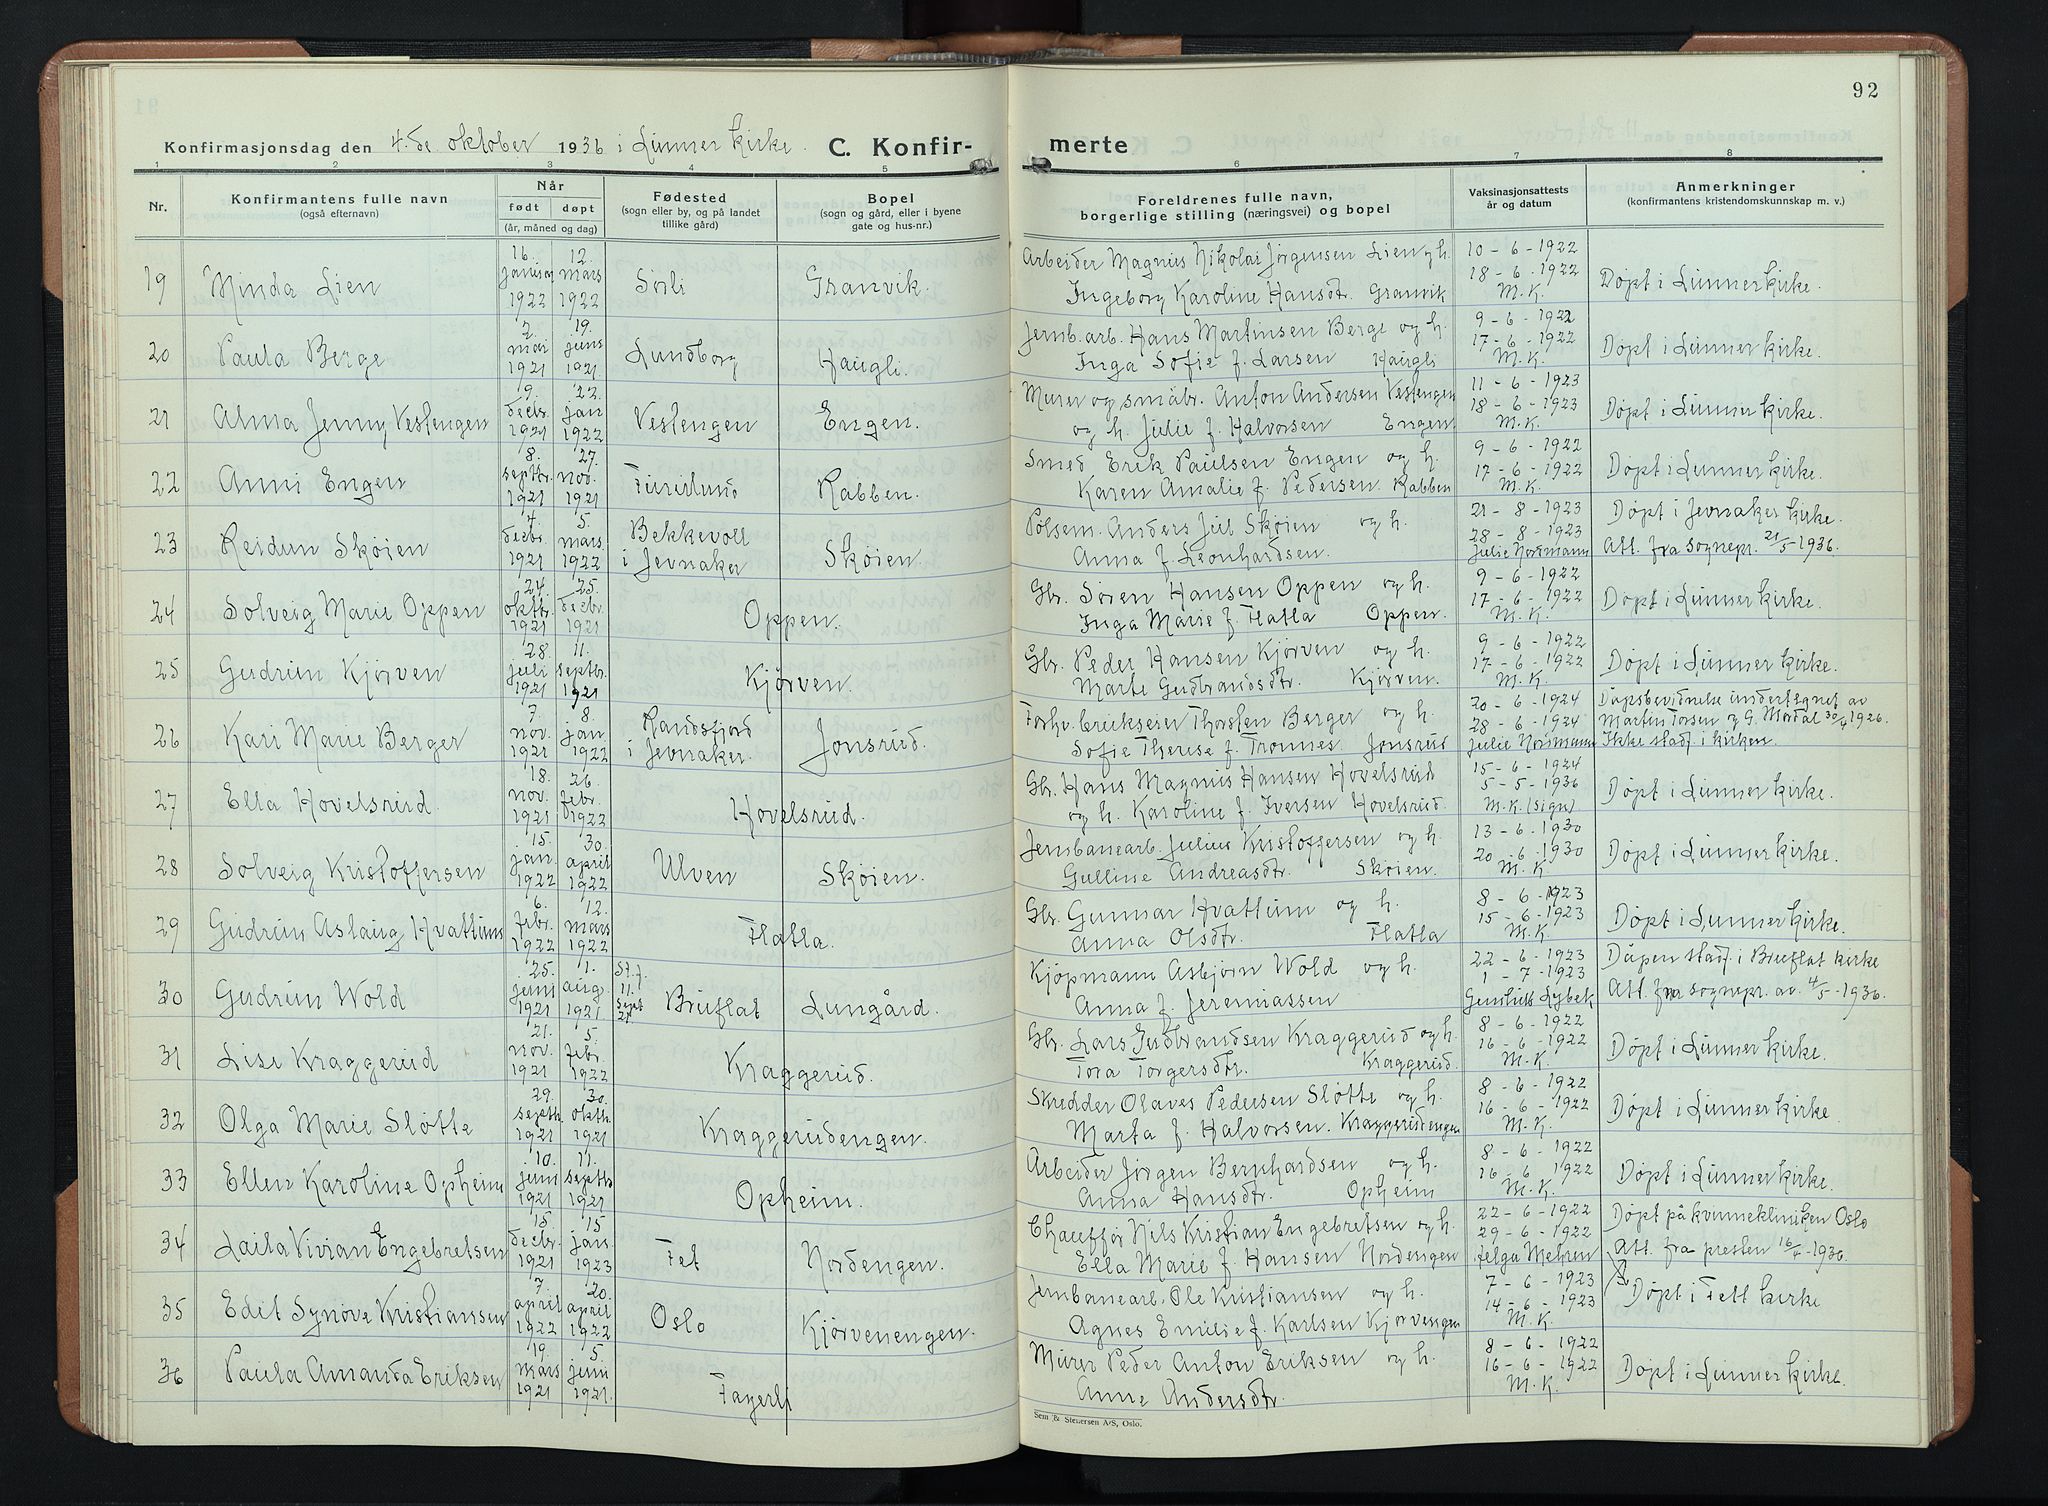 92
Konfirmasjonsdag den 4.de oktober 1936 i Lunner kirke. C. Konfir-
merte
1 2 3 4 5 6 7 8
Nr.
Konfirmantens fulle navn
(også efternavn)
Når
født døpt
(år, måned og dag)
Fødested
(sogn eller by, og på landet
tillike gård)
Bopel
(sogn og gård, eller i byene
gate og hus-nr.)
Foreldrenes fulle navn,
borgerlige stilling (næringsvei) og bopel
Vaksinasjonsattests
år og datum
Anmerkninger
(konfirmantens kristendomskunnskap m. v.)
16. 12. Arbeider Magnus Nikolai Jørgensen Lien og h. 10-6-1922
19 Minda Lien januar mars Sørli Granvik. 18-6-1922 Døpt i Lunner kirke.
1922 1922 Ingeborg Karoline Hansdtr. Granvik M.K.
2. 19. Jernb.arb. Hans Martinsen Berge og h. 9-6-1922
20 Paula Berge mai juni Lundborg Haugli. 17-6-1922 Døpt i Lunner kirke.
1921 1921 Inga Sofie f. Larsen Haugli M.K.
9. 22. Murer og småbr. Anton Andersen Vestengen 11-6-1923
21 Alma Jenny Vestengen decbr. jan Vestengen Engen. 18-6-1923 Døpt i Lunner kirke.
1921 1922 og h. Julie f. Halvorsen Engen M.K.
8. 27. Smed Erik Paulsen Engen og h. 9-6-1922
22 Anni Engen septbr. nov. Furulund Rabben. 17-6-1922 Døpt i Lunner kirke.
1921 1921 Karen Amalie f. Pedersen Rabben M.K.
4. 5. Bekkevoll Pølsem. Anders Jul Skøien og h. 21-8-1923 Døpt i Jevnaker kirke.
23 Reidun Skøien decbr. mars i Jevnaker Skøien. 28-8-1923
1921 1922 Anna f. Leonhardsen. Julie Normann Att. fra sognepr. 21/5-1936.
24. 25. Gbr. Søren Hansen Oppen og h. 9-6-1922
24 Solveig Marie Oppen oktbr. decbr. Oppen. 17-6-1922 Døpt i Lunner kirke.
1921 1921 Inga Marie f. Flatla Oppen. M.K.
28. 11. Gbr. Peder Hansen Kjørven og h. 9-6-1922
25 Gudrun Kjørven juli septbr. Kjørven. 17-6-1922 Døpt i Lunner kirke.
1921 1921 Marte Gudbrandsdtr. Kjørven. M.K.
7. 8. Randsfjord Forhv. Erikserer Thorsten Berger og h. 20-6-1924 Dåpsbevidnelse undertegnet av
26 Kari Marie Berger nov. jan. i Jevnaker. Jonsrud. 28-6-1924 Martin Torsen og G. Mørdal 30/4 1926.
1921 1922 Sofie Therese f. Trønnes Jonsrud Julie Normann Ikke stadf. i kirken.
18. 26. Gbr. Hans Magnus Hansen Hovelsrud 15-6-1924
27 Ella Hovelsrud. nov. febr. Hovelsrud. 5-5-1936 Døpt i Lunner kirke.
1921 1922 og h. Karoline f. Iversen Hovelsrud. M.K. (sign)
15. 30. Jernbanearb. Julius Kristoffersen og h. 13-6-1930
28 Solveig Kristoffersen jan. april Ulven Skøien. 20-6-1930 Døpt i Lunner kirke.
1922 1922 Gulline Andreasdtr. Skøien. M.K.
6. 12. Gbr. Gunnar Hvattum og h. 8-6-1923
29 Gudrun Aslaug Hvattum febr. mars Flatla. 15-6-1923 Døpt i Lunner kirke.
1922 1922 Anna Olsdtr. Flatla M.K.
25. 1. St.f. Kjøpmann Asbjørn Wold og h. 22-6-1923 Dåpen stadf. i Bruflat kirke
30 Gudrun Wold juni aug. 11. sept 21. Bruflat Lungård. 1-7-1923
1921 1921 Anna f. Jeremiassen Lybek Att. fra sognepr. av 4/5-1936.
21. 5. Gbr. Lars Gudbrandsen Kraggerud og h. 8-6-1922
31 Lise Kraggerud nov. febr. Kraggerud. 16-6-1922 Døpt i Lunner kirke.
1921 1922 Tora Torgersdtr. Kraggerud. M.K.
29. 30. Skredder Olaves Pedersen Sløtte og h. 8-6-1922
32 Olga Marie Sløtte septb. oktb. Kraggerudengen. 16-6-1922 Døpt i Lunner kirke.
1921 1921 Marta f. Halvorsen. Kraggerudengen M.K.
10. 11. Arbeider Jørgen Bernhardsen og h. 8-6-1922
33 Ellen Karoline Opheim juni septb. Opheim. 16-6-1922 Døpt i Lunner kirke.
1921 1921 Anna Hansdtr. Opheim M.K.
15. 15 Chauffør Nils Kristian Engebretsen og h. 22-6-1922 Døpt på kvinnekliniken Oslo
34 Laila Vivian Engebretsen decbr. jan. Fet Nordengen. 29-6-1922
1921 1923 Ella Marie f. Hansen Nordengen Helga Mehren Att. fra presten 16/4-1936
7. 20. Jernbanearb. Ole Kristiansen og h. 7-6-1923
35 Edit Synøve Kristianssen april april Oslo Kjørvenengen. 14-6-1923 Døpt i Fett kirke
1922 1922 Agnes Emilie f. Karlsen Kjørvengen M.K.
19. 5. Murer Peder Anton Eriksen og h. 8-6-1922
36 Paula Amanda Eriksen mars juni Fagerli 16-6-1922 Døpt i Lunner kirke.
1921 1921. Anne Andersdtr. M.K.
Sem & Stenersen A/S, Oslo.